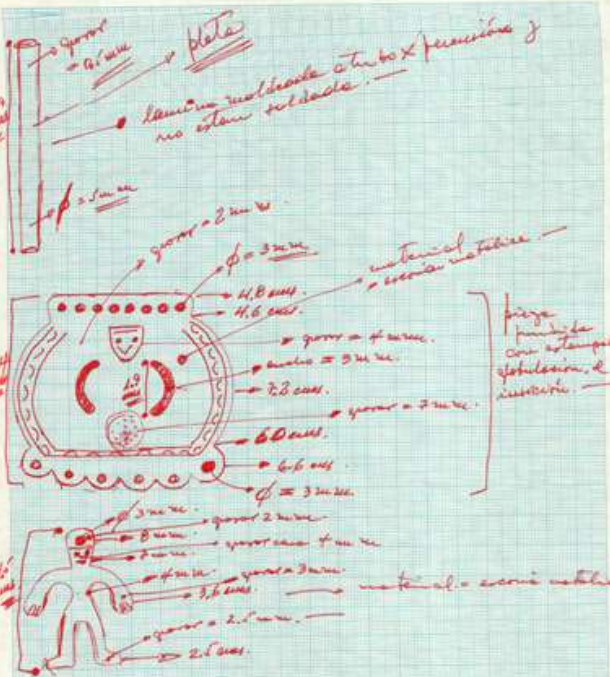 grosor
= 0.5 mm
plata
lamina moldeada a tubo x percusión y
no estan soldada. —
φ = 5 mm
grosor = 2 mm
φ = 3 mm
material
= escoria metalica. —
4.8 cms
4.6 cms.
grosor = 4 mm.
ancho = 3 mm.
1.9
7.2 cms.
grosor = 7 mm.
6.0 cms.
6.6 cms.
φ = 3 mm
pieza
fundida
con
incisión. —
φ 3 mm.
grosor 2 mm.
8 mm.
grosor cara 4 mm
7 mm.
4 mm
grosor = 3 mm.
3,6 cms.
material = escoria metalica
grosor = 2.5 mm.
2.5 cms.